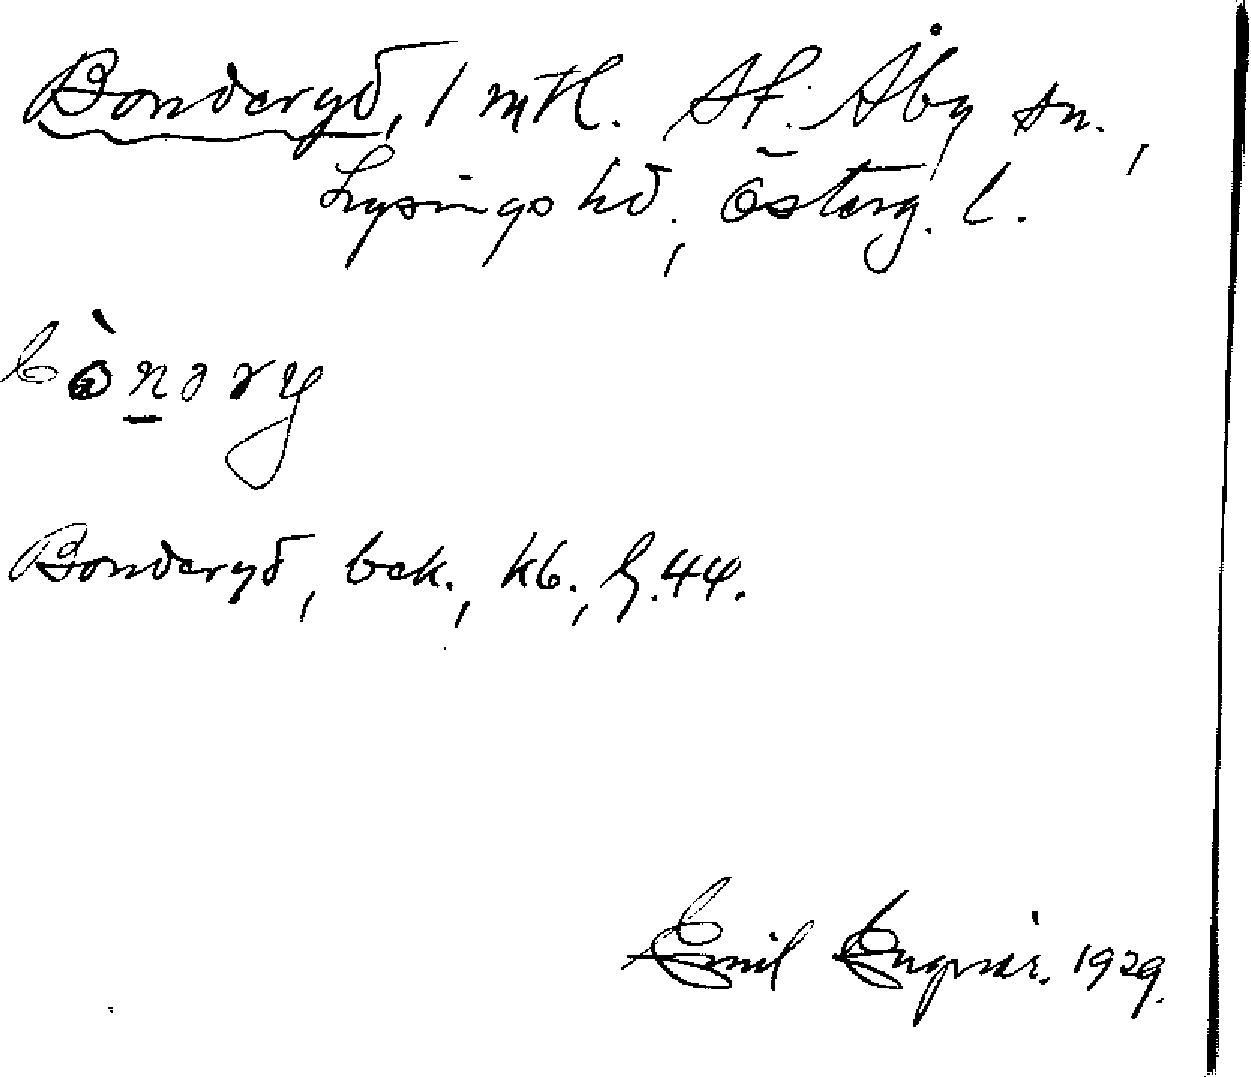 Bonderyd, 1 mtl. St. Åby sn.,
Lysings hd., Österg. l.
bònəry
Bonderyd, bek., kb., G.44.
Emil Engvär. 1929.